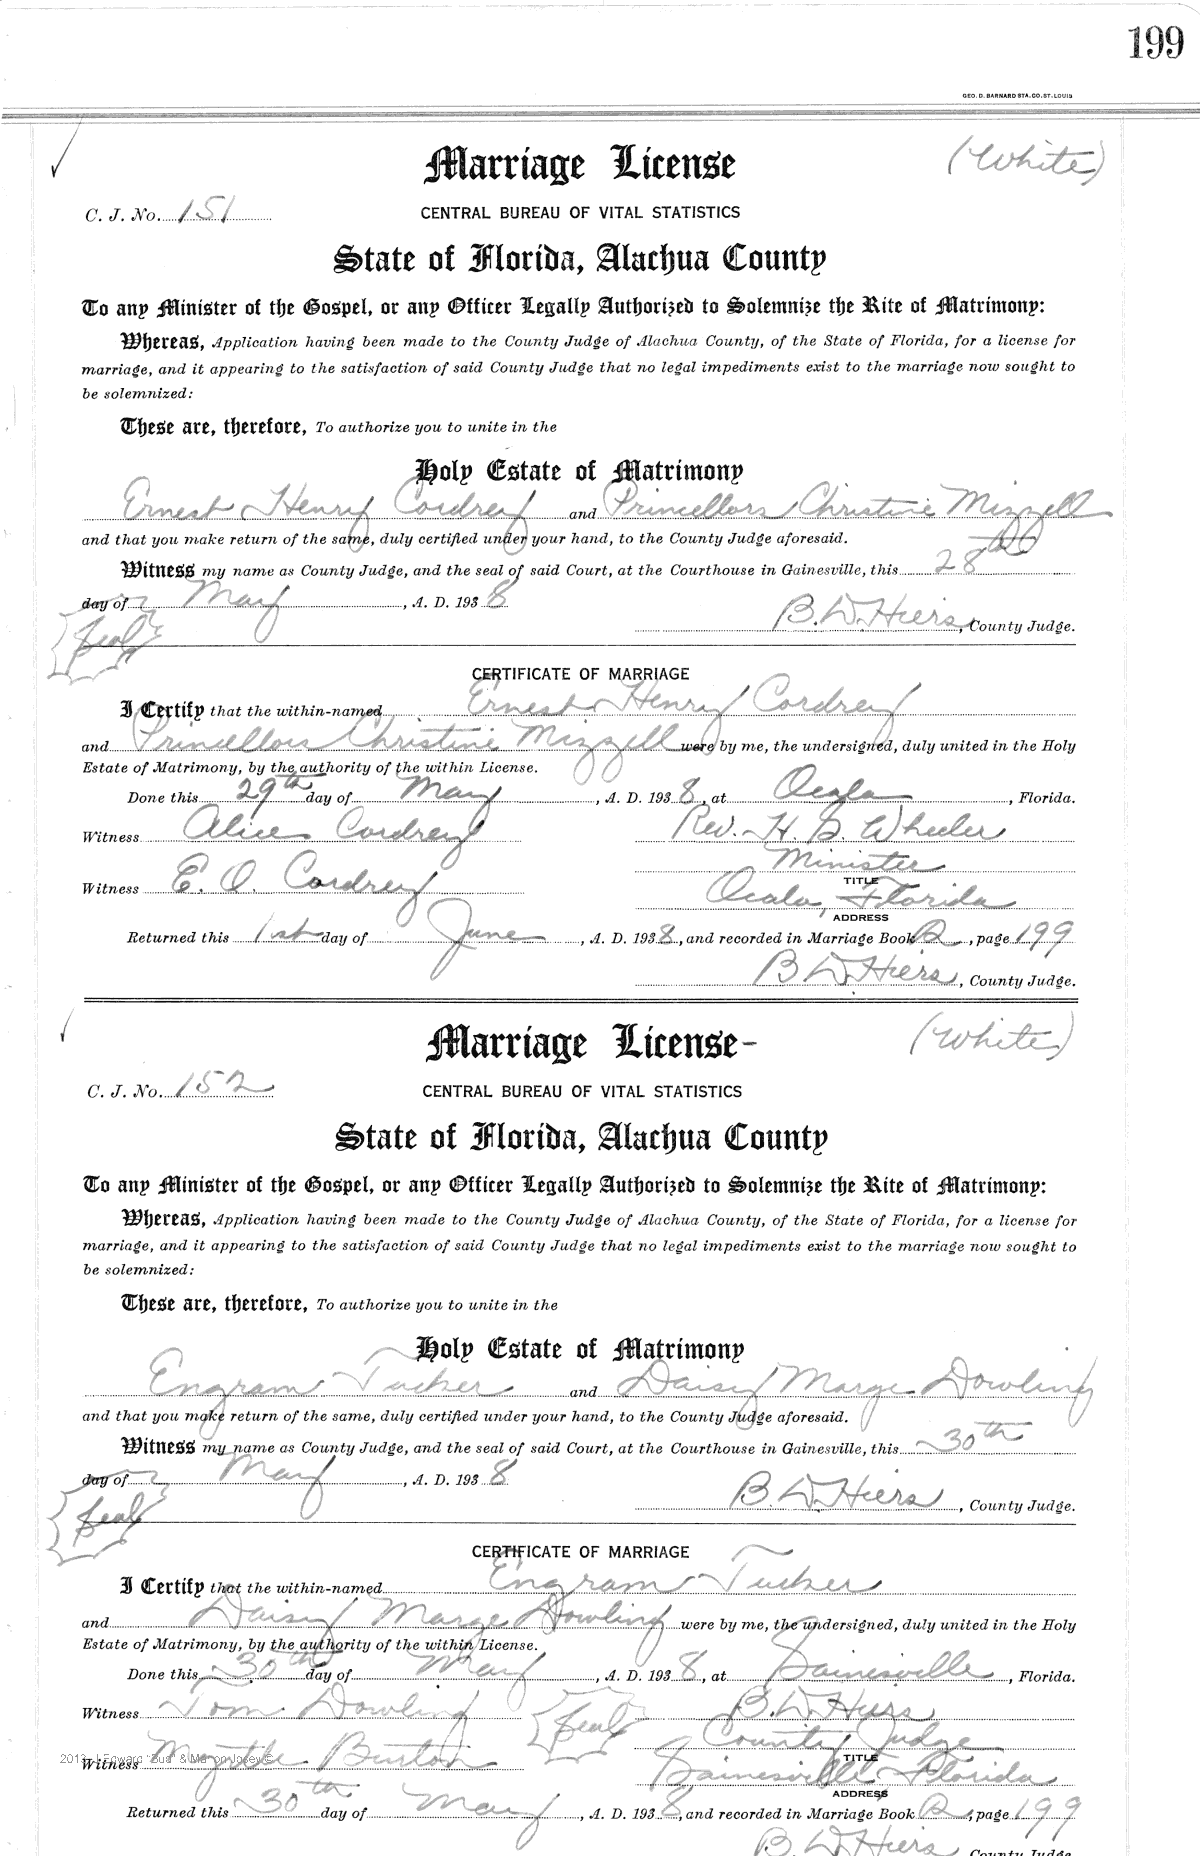 199
GEO. D. BARNARD STA. CO. ST. LOUIS
Marriage License (White)
C. J. No. 151 CENTRAL BUREAU OF VITAL STATISTICS
State of Florida, Alachua County
To any Minister of the Gospel, or any Officer Legally Authorized to Solemnize the Rite of Matrimony:
Whereas, Application having been made to the County Judge of Alachua County, of the State of Florida, for a license for
marriage, and it appearing to the satisfaction of said County Judge that no legal impediments exist to the marriage now sought to
be solemnized:
These are, therefore, To authorize you to unite in the
Holy Estate of Matrimony
Ernest Henry Cordrey and Princellors Christine Mizzell
and that you make return of the same, duly certified under your hand, to the County Judge aforesaid.
Witness my name as County Judge, and the seal of said Court, at the Courthouse in Gainesville, this 28th
day of May, A. D. 1938 B. D. Hiers, County Judge.
Seal
CERTIFICATE OF MARRIAGE
I Certify that the within-named Ernest Henry Cordrey
and Princellors Christine Mizzell were by me, the undersigned, duly united in the Holy
Estate of Matrimony, by the authority of the within License.
Done this 29th day of May, A. D. 1938, at Ocala, Florida.
Witness Alice Cordrey Rev. H. G. Wheeler
Minister
Witness E. O. Cordrey TITLE
Ocala, Florida
ADDRESS
Returned this 1st day of June, A. D. 1938, and recorded in Marriage Book R, page 199
B D Hiers, County Judge.
Marriage License- (White)
C. J. No. 152 CENTRAL BUREAU OF VITAL STATISTICS
State of Florida, Alachua County
To any Minister of the Gospel, or any Officer Legally Authorized to Solemnize the Rite of Matrimony:
Whereas, Application having been made to the County Judge of Alachua County, of the State of Florida, for a license for
marriage, and it appearing to the satisfaction of said County Judge that no legal impediments exist to the marriage now sought to
be solemnized:
These are, therefore, To authorize you to unite in the
Holy Estate of Matrimony
Engram Tucker and Daisy Marge Dowling
and that you make return of the same, duly certified under your hand, to the County Judge aforesaid.
Witness my name as County Judge, and the seal of said Court, at the Courthouse in Gainesville, this 30th
day of May, A. D. 1938 B. D. Hiers, County Judge.
Seal
CERTIFICATE OF MARRIAGE
I Certify that the within-named Engram Tucker
and Daisy Marge Dowling were by me, the undersigned, duly united in the Holy
Estate of Matrimony, by the authority of the within License.
Done this 30th day of May, A. D. 1938, at Gainesville, Florida.
Witness Tom Dowling Seal B. D. Hiers
County Judge
2013 J Edward "Bud" & Marion Josey ©
Witness Myrtle Burton TITLE
Gainesville Florida
ADDRESS
Returned this 30th day of May, A. D. 1938, and recorded in Marriage Book R, page 199
B D Hiers County Judge